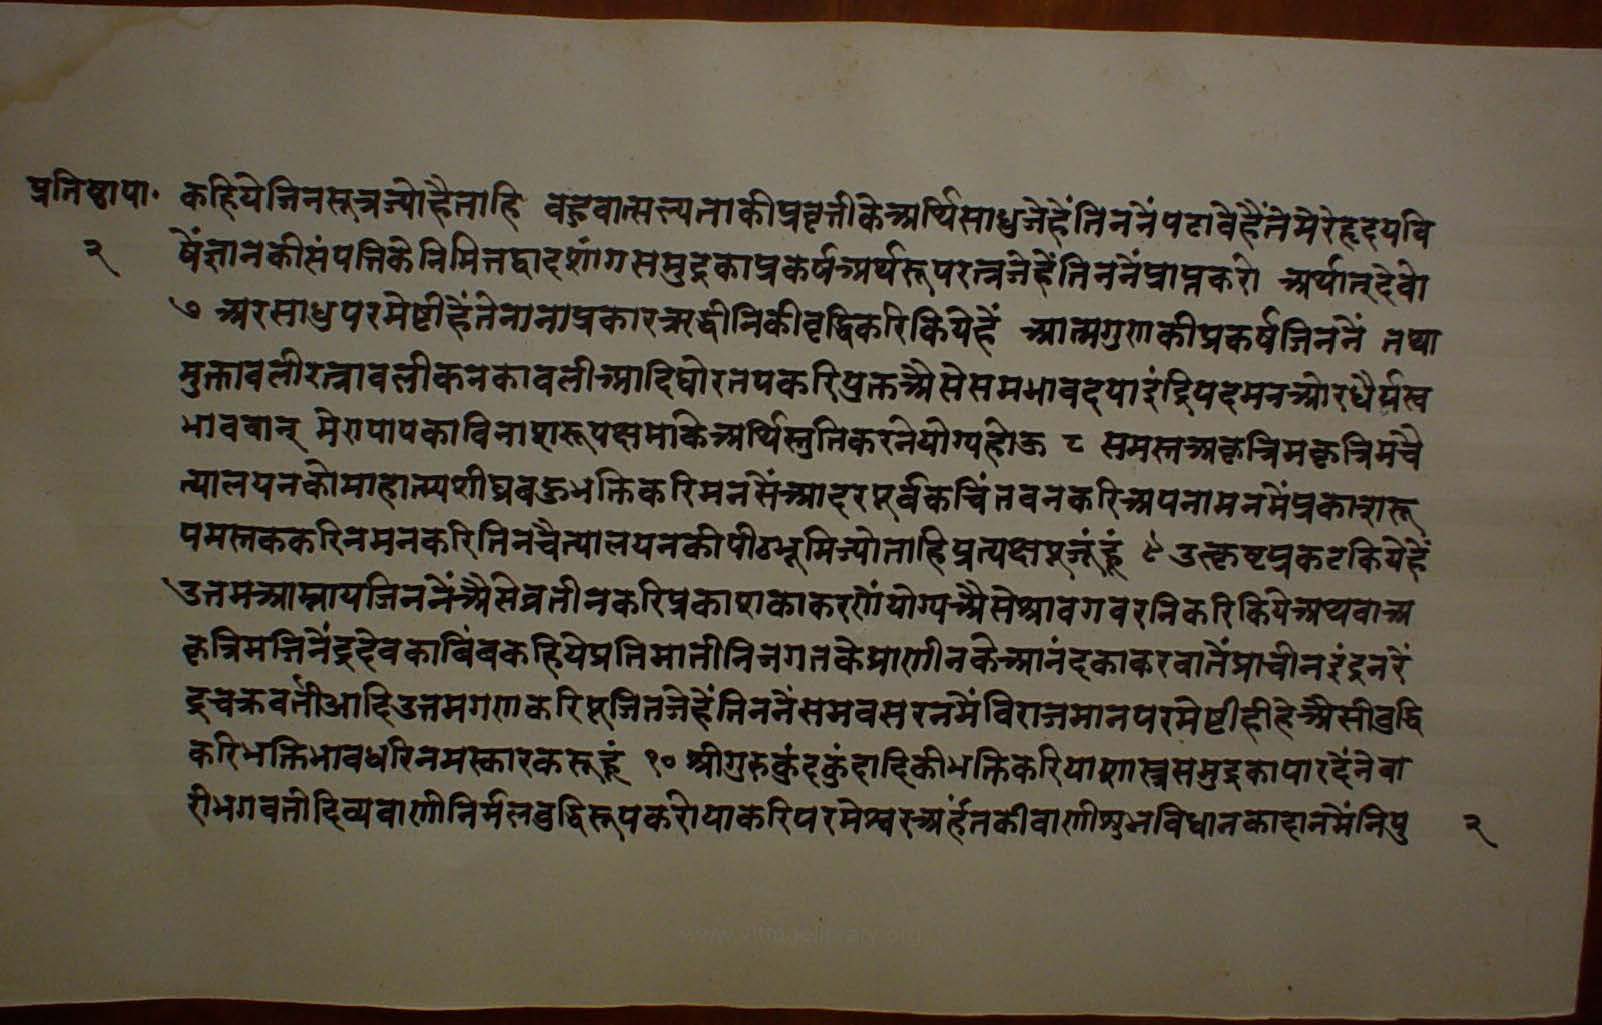 प्रतिष्ठापा॰ कहियेजिनसूत्रज्योहैताहि वहुवात्सल्यताकीप्रवृत्तीकेअर्थिसाधुजेहेंतिननेंपढावेहैंतेमेरेहृदयवि
२ षेंज्ञानकीसंपत्तिकेनिमित्तद्वादशांगसमुद्रकाप्रकर्षअर्थरूपरत्नजेहेंतिननेंप्राप्तकरो अर्थात्देवो
७ अरसाधुपरमेष्टीहैंतेनानाप्रकारऋद्धीनिकीवृद्धिकरिकियेहें आत्मगुणकीप्रकर्षजिननें तथा
मुक्तावलीरत्नावलीकनकावलीआदिघोरतपकरियुक्तअैसेसमभावदयाइंद्रियदमनओरधैर्यस्व
भाववान् मेरापापकाविनाशरूपक्षमाकेअर्थिस्तुतिकरनेयोग्यहोऊ ८ समस्तअकृत्रिमकृत्रिमचै
त्यालयनकोमाहात्म्यशीघ्रबहुभक्तिकरिमनसेंआदरपूर्वकचिंतवनकरिअपनामनमेंप्रकाशरू
पमस्तककरिनमनकरितिनचैत्यालयनकीपीठभूमिज्योताहिप्रत्यक्षपूजूंहूं ९ उत्कृष्टप्रकटकियेहें
उत्तमआम्नायजिननेंअैसेव्रतीनकरिप्रकाशकाकरणेंयोग्यअैसेश्रावगवरनिकरिकियेअथवाअ
कृत्रिमजिनेंद्रदेवकाबिंबकहियेप्रतिमातीनिजगतकेप्राणीनकेआनंदकाकरवातेंप्राचीनइंद्रनरें
द्रचक्रवर्तीआदिउत्तमगणकरिपूजितजेहेंतिननेंसमवसरनमेंविराजमानपरमेष्टीहीहेअैसीबुद्धि
करिभक्तिभावधरिनमस्कारकरूहूं १० श्रीगुरुकुंदकुंदादिकीभक्तिकरियाशास्त्रसमुद्रकापारदेंनेवा
रीभगवतीदिव्यवाणीनिर्मलबुद्धिरूपकरोयाकरिपरमेश्वरअर्हंतकीवाणीशुभविधानकादानमेंनिपु २